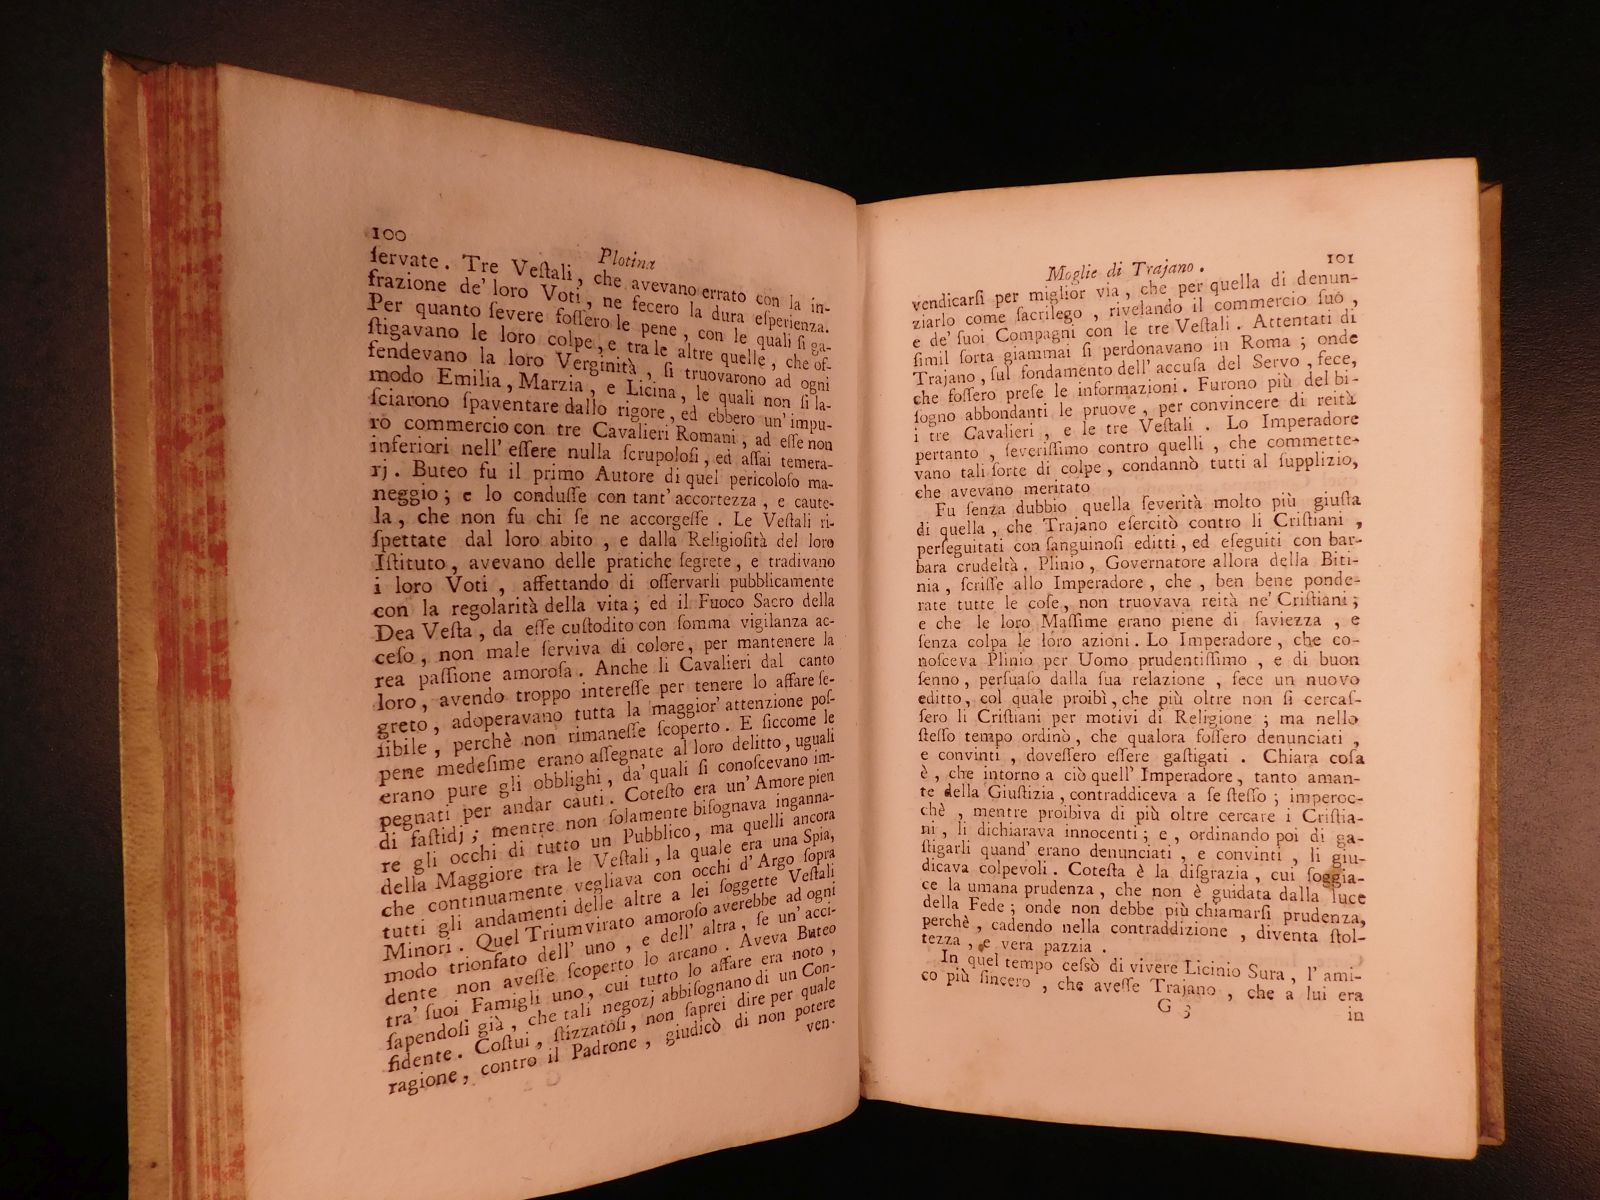 100
Plotina
ſervate. Tre Veſtali, che avevano errato con la in-
frazione de' loro Voti, ne fecero la dura eſperienza.
Per quanto ſevere foſſero le pene, con le quali ſi ga-
ſtigavano le loro colpe, e tra le altre quelle, che of-
fendevano la loro Verginità, ſi truovarono ad ogni
modo Emilia, Marzia, e Licina, le quali non ſi la-
ſciarono ſpaventare dallo rigore, ed ebbero un' impu-
ro commercio con tre Cavalieri Romani, ad eſſe non
inferiori nell' eſſere nulla ſcrupoloſi, ed aſſai temera-
rj. Buteo fu il primo Autore di quel pericoloſo ma-
neggio; e lo conduſſe con tant' accortezza, e caute-
la, che non fu chi ſe ne accorgeſſe. Le Veſtali ri-
ſpettate dal loro abito, e dalla Religioſità del loro
Iſtituto, avevano delle pratiche ſegrete, e tradivano
i loro Voti, affettando di oſſervarli pubblicamente
con la regolarità della vita; ed il Fuoco Sacro della
Dea Veſta, da eſſe cuſtodito con ſomma vigilanza ac-
ceſo, non male ſerviva di colore, per mantenere la
rea paſſione amoroſa. Anche li Cavalieri dal canto
loro, avendo troppo intereſſe per tenere lo affare ſe-
greto, adoperavano tutta la maggior' attenzione poſ-
ſibile, perchè non rimaneſſe ſcoperto. E ſiccome le
pene medeſime erano aſſegnate al loro delitto, uguali
erano pure gli obblighi, da' quali ſi conoſcevano im-
pegnati per andar cauti. Cotesto era un' Amore pien
di faſtidj; mentre non ſolamente biſognava inganna-
re gli occhi di tutto un Pubblico, ma quelli ancora
della Maggiore tra le Veſtali, la quale era una Spia,
che continuamente vegliava con occhi d' Argo ſopra
tutti gli andamenti delle altre a lei ſoggette Veſtali
Minori. Quel Triumvirato amoroſo averebbe ad ogni
modo trionfato dell' uno, e dell' altra, ſe un' acci-
dente non aveſſe ſcoperto lo arcano. Aveva Buteo
tra' ſuoi Famigli uno, cui tutto lo affare era noto,
ſapendoſi già, che tali negozj abbiſognano di un Con-
fidente. Coſtui, ſtizzatoſi, non ſaprei dire per quale
ragione, contro il Padrone, giudicò di non potere
ven-
Moglie di Trajano.
101
vendicarſi per miglior via, che per quella di denun-
ziarlo come ſacrilego, rivelando il commercio ſuo,
e de' ſuoi Compagni con le tre Veſtali. Attentati di
ſimil ſorta giammai ſi perdonavano in Roma; onde
Trajano, ſul fondamento dell' accuſa del Servo, fece,
che foſſero preſe le informazioni. Furono più del bi-
ſogno abbondanti le pruove, per convincere di reità
i tre Cavalieri, e le tre Veſtali. Lo Imperadore
pertanto, ſeveriſſimo contro quelli, che commette-
vano tali ſorte di colpe, condannò tutti al ſupplizio,
che avevano meritato
Fu ſenza dubbio quella ſeverità molto più giuſta
di quella, che Trajano eſercitò contro li Criſtiani,
perſeguitati con ſanguinoſi editti, ed eſeguiti con bar-
bara crudeltà. Plinio, Governatore allora della Biti-
nia, ſcriſſe allo Imperadore, che, ben bene ponde-
rate tutte le coſe, non truovava reità ne' Criſtiani;
e che le loro Maſſime erano piene di ſaviezza, e
ſenza colpa le loro azioni. Lo Imperadore, che co-
noſceva Plinio per Uomo prudentiſſimo, e di buon
ſenno, perſuaſo dalla ſua relazione, fece un nuovo
editto, col quale proibì, che più oltre non ſi cercaſ-
ſero li Criſtiani per motivi di Religione; ma nello
ſteſſo tempo ordinò, che qualora foſſero denunciati,
e convinti, doveſſero eſſere gaſtigati. Chiara coſa
è, che intorno a ciò quell' Imperadore, tanto aman-
te della Giuſtizia, contraddiceva a ſe ſteſſo; imperoc-
chè, mentre proibiva di più oltre cercare i Criſtia-
ni, li dichiarava innocenti; e, ordinando poi di ga-
ſtigarli quand' erano denunciati, e convinti, li giu-
dicava colpevoli. Coteſta è la diſgrazia, cui ſoggia-
ce la umana prudenza, che non è guidata dalla luce
della Fede; onde non debbe più chiamarſi prudenza,
perchè, cadendo nella contraddizione, diventa ſtol-
tezza, e vera pazzia.
In quel tempo ceſsò di vivere Licinio Sura, l' ami-
co più ſincero, che aveſſe Trajano, che a lui era
G 3
in